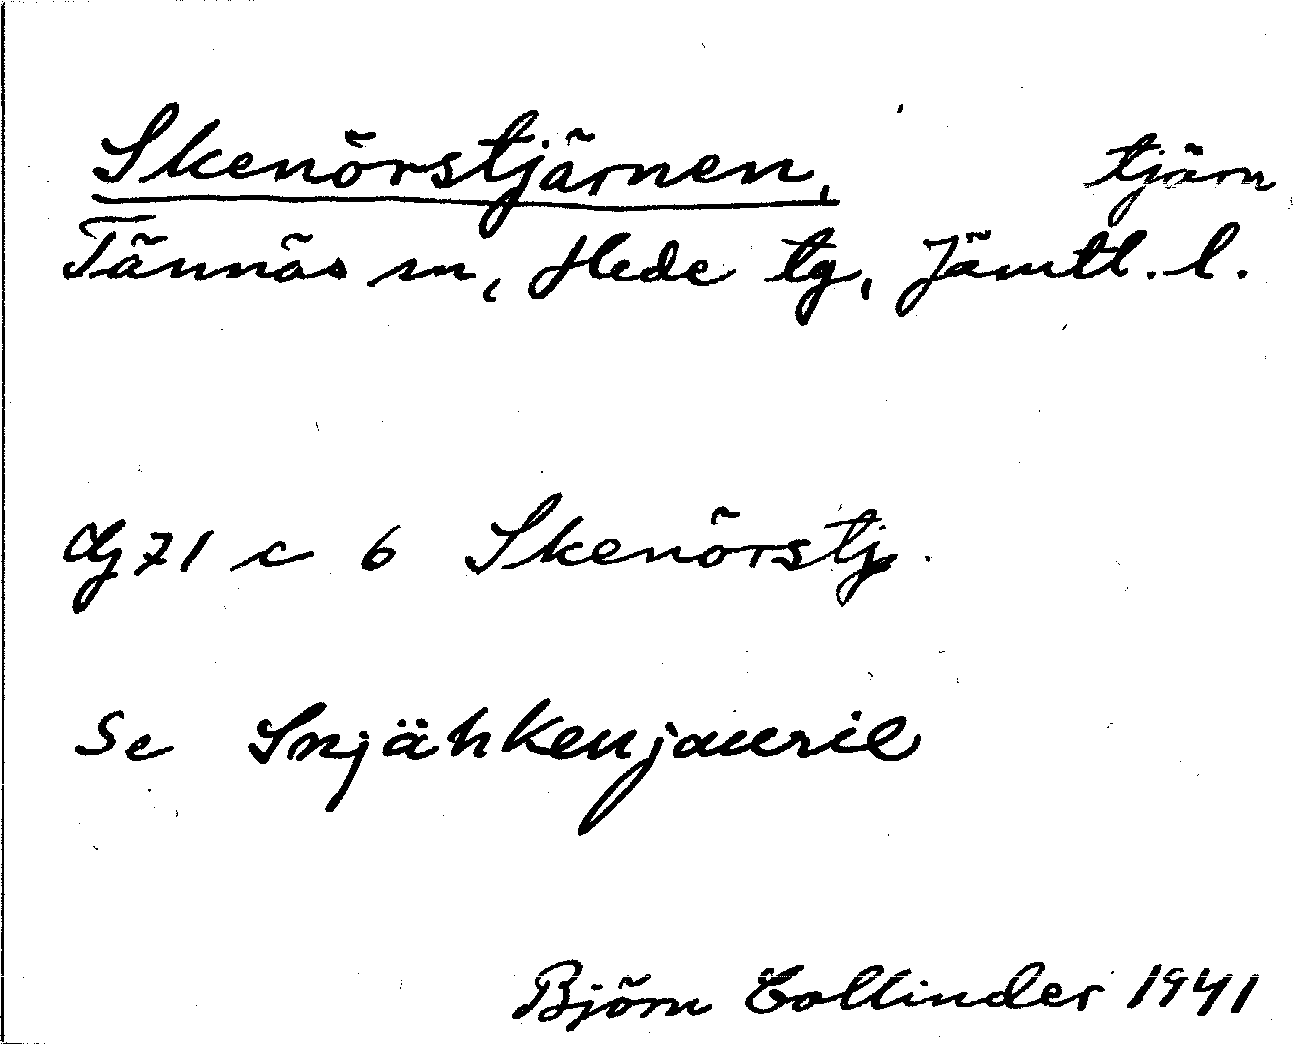 Skenörstjärnen, tjärn
Tännäs sn, Hede tg, Jämtl. l.
dg 71 c 6 Skenörstj.
Se Snjähkenjauril
Björn Collinder 1941